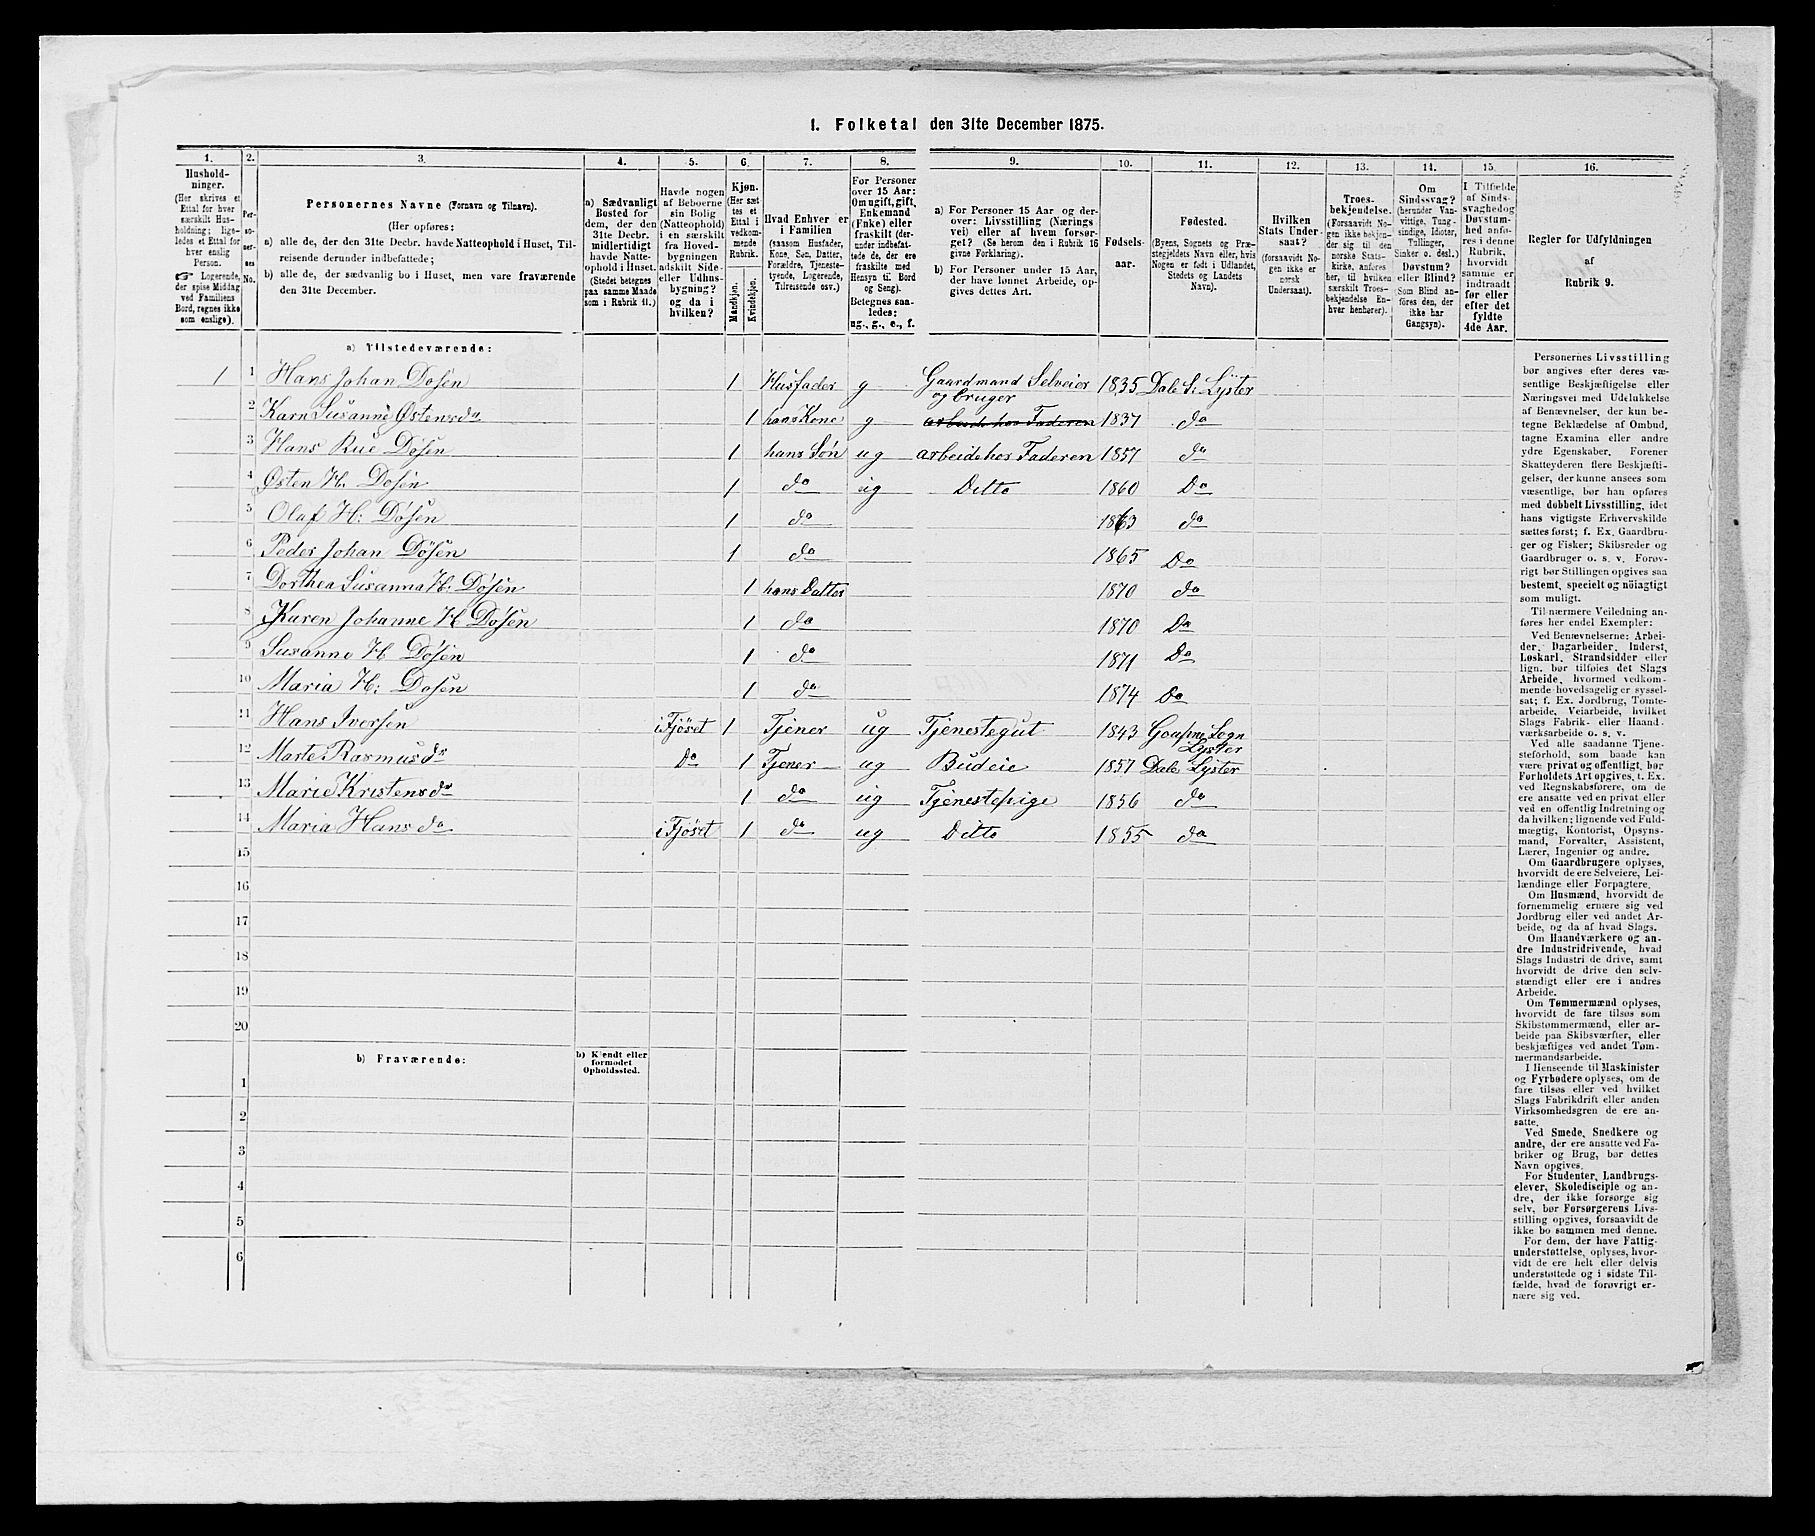 1. Folketal den 31te December 1875.
1. 2. 3. 4. 5. 6. 7. 8. 9. 10. 11. 12. 13. 14. 15. 16.
Hushold-
ninger.
(Her skrives et
Ettal for hver
særskilt Hus-
holdning; lige-
ledes et Ettal for
hver enslig
Person.
☞ Logerende,
der spise Middag
ved Familiens
Bord, regnes ikke
som enslige).
Per-
so-
ner-
nes
No.
Personernes Navne (Fornavn og Tilnavn).
(Her opføres:
a) alle de, der den 31te Decbr. havde Natteophold i Huset, Til-
reisende derunder indbefattede;
b) alle de, der sædvanlig bo i Huset, men vare fraværende
den 31te December.
a) Sædvanligt
Bosted for
dem, der den
31te Decbr.
midlertidigt
havde Natte-
ophold i Huset.
(Stedet betegnes
paa samme Maade
som i Rubrik 11.)
Havde nogen
af Beboerne
sin Bolig
(Natteophold)
i en særskilt
fra Hoved-
bygningen
adskilt Side-
eller Udhus-
bygning?
og da i
hvilken?
Kjøn.
(Her sæt
tes et
Ettal i
vedkom-
mende
Rubrik.
Mandkjøn.
Kvindekjøn.
Hvad Enhver er
i Familien
(saasom Husfader,
Kone, Søn, Datter,
Forældre, Tjeneste-
tyende, Logerende,
Tilreisende osv.)
For Personer
over 15 Aar:
Om ugift, gift,
Enkemand
(Enke) eller
fraskilt (der-
under indbefat-
tede de, der ere
fraskilte med
Hensyn til Bord
og Seng).
Betegnes saa-
ledes:
ug., g., e., f.
a) For Personer 15 Aar og der-
over: Livsstilling (Nærings
vei) eller af hvem forsør-
get? (Se herom den i Rubrik 16
givne Forklaring).
b) For Personer under 15 Aar,
der have lønnet Arbeide, op-
gives dettes Art.
Fødsels-
aar.
Fødested.
(Byens, Sognets og Præ-
stegjeldets Navn eller, hvis
Nogen er født i Udlandet,
Stedets og Landets
Navn).
Hvilken
Stats Under-
saat?
(forsaavidt No-
gen ikke er
norsk
Undersaat).
Troes-
bekjendelse.
(Forsaavidt No-
gen ikke bekjen-
der sig til den
norske Stats-
kirke, anføres
her, til hvilken
særskilt Troes-
bekjendelse En-
hver henhører).
Om
Sindssvag?
(herunder Van-
vittige, Tung-
sindige, Idioter,
Tullinger,
Sinker o. desl.).
Døvstum?
eller Blind?
Som Blind an-
føres den, der
ikke har
Gangsyn).
I Tilfælde
af Sinds-
svaghed og
Døvstum-
hed anfø-
res i denne
Rubrik,
hvorvidt
samme er
indtraadt
før eller
efter det
fyldte
4de Aar.
Regler for Udfyldningen
af
Rubrik 9.
a) Tilstedeværende:
1 1 Hans Johan Døsen 1 Husfader g Gaardmand Selveier og bruger 1835 Dale S: Lyster
2 Karn Susanne Østensda 1 hans Kone g arbeide hos Faderen 1837 do
3 Hans Rue Døsen 1 hans Søn ug arbeide hos Faderen 1857 do
4 Østen H. Døsen 1 do ug Ditto 1860 Do
5 Olaf H: Døsen 1 do 1863 do
6 Peder Johan Døsen 1 do 1865 Do
7 Dorthea Susanna H: Døsen 1 hans Datter 1870 do
8 Karen Johanne H Døsen 1 do 1870 Do
9 Susanne H Døsen 1 do 1871 Do
10 Maria H: Døsen 1 do 1874 Do
11 Hans Iversen i Fjøset 1 Tjener ug Tjenestegut 1843 Goupne Sogn Lyster
12 Marte Rasmusdr Do 1 Tjener ug Budeie 1857 Dale Lyster
13 Marie Kristensda 1 do ug Tjenestepige 1856 do
14 Maria Hansda i Fjøset 1 do ug Ditto 1855 do
15
16
17
18
19
20
b) Fraværende: b) Kjendt eller
formodet
Opholdssted.
1
2
3
4
5
6
Personernes Livsstilling
bør angives efter deres væ-
sentlige Beskjæftigelse eller
Næringsvei med Udelukkelse
af Benævnelser, der kun be-
tegne Beklædelse af Ombud,
tagne Examina eller andre
ydre Egenskaber. Forener
Skatteyderen flere Beskjæfti-
gelser, der kunne ansees som
væsentlige, bør han opføres
med dobbelt Livsstilling, idet
hans vigtigste Erhvervskilde
sættes først; f. Ex. Gaardbru-
ger og Fisker; Skibsreder og
Gaardbruger o. s. v. Forøv-
rigt bør Stillingen opgives saa
bestemt, specielt og nöiagtigt
som muligt.
Til nærmere Veiledning an-
føres her endel Exempler:
Ved Benævnelserne: Arbei-
der, Dagarbeider, Inderst,
Løskarl, Strandsidder eller
lign. bør tilføies det Slags
Arbeide, hvormed vedkom-
mende hovedsagelig er syssel-
sat; f. Ex. Jordbrug, Tomte-
arbeide, Veiarbeide, hvilket
Slags Fabrik- eller Haand-
værksarbeide o. s. v.
Ved alle saadanne Tjene-
steforhold, som baade kan
være privat og offentligt, bør
Forholdets Art opgives, t. Ex.
ved Regnskabsførere, om de
ere ansatte ved en privat eller
ved en offentlig Indretning og
da hvilken; lignende ved Fuld-
mægtig, Kontorist, Opsyns-
mand, Forvalter, Assistent,
Lærer, Ingeniør og andre.
Om Gaardbrugere oplyses,
hvorvidt de ere Selveiere, Lei-
lændinge eller Forpagtere.
Om Husmænd, hvorvidt de
fornemmelig ernære sig ved
Jordbrug eller ved andet Ar-
beide, og da af hvad Slags.
Om Haandværkere og an-
dre Industridrivende, hvad
Slags Industri de drive, samt
hvorvidt de drive den selv-
stændigt eller ere i andres
Arbeide.
Om Tømmermænd oplyses,
hvorvidt de fare tilsøs som
Skibstømmermænd, eller ar-
beide paa Skibsværfter, eller
beskjæftiges ved andet Tøm-
mermandsarbeide.
I Henseende til Maskinister
og Fyrbødere oplyses, om de
fare tilsøs eller ved hvilket
Slags Fabrikdrift eller anden
Virksomhedsgren de ere an-
satte.
Ved Smede, Snedkere og
andre, der ere ansatte ved Fa-
briker og Brug, bør dettes
Navn opgives.
For Studenter, Landbrugs-
elever, Skoledisciple og an-
dre, der ikke forsørge sig
selv, bør Forsørgerens Livs-
stilling opgives, forsaavidt de
ikke bo sammen med denne.
For dem, der have Fattig-
understøttelse, oplyses, hvor-
vidt de ere helt eller delvis
understøttede og i sidste Til-
fælde, hvad de forøvrigt er-
nære sig ved.